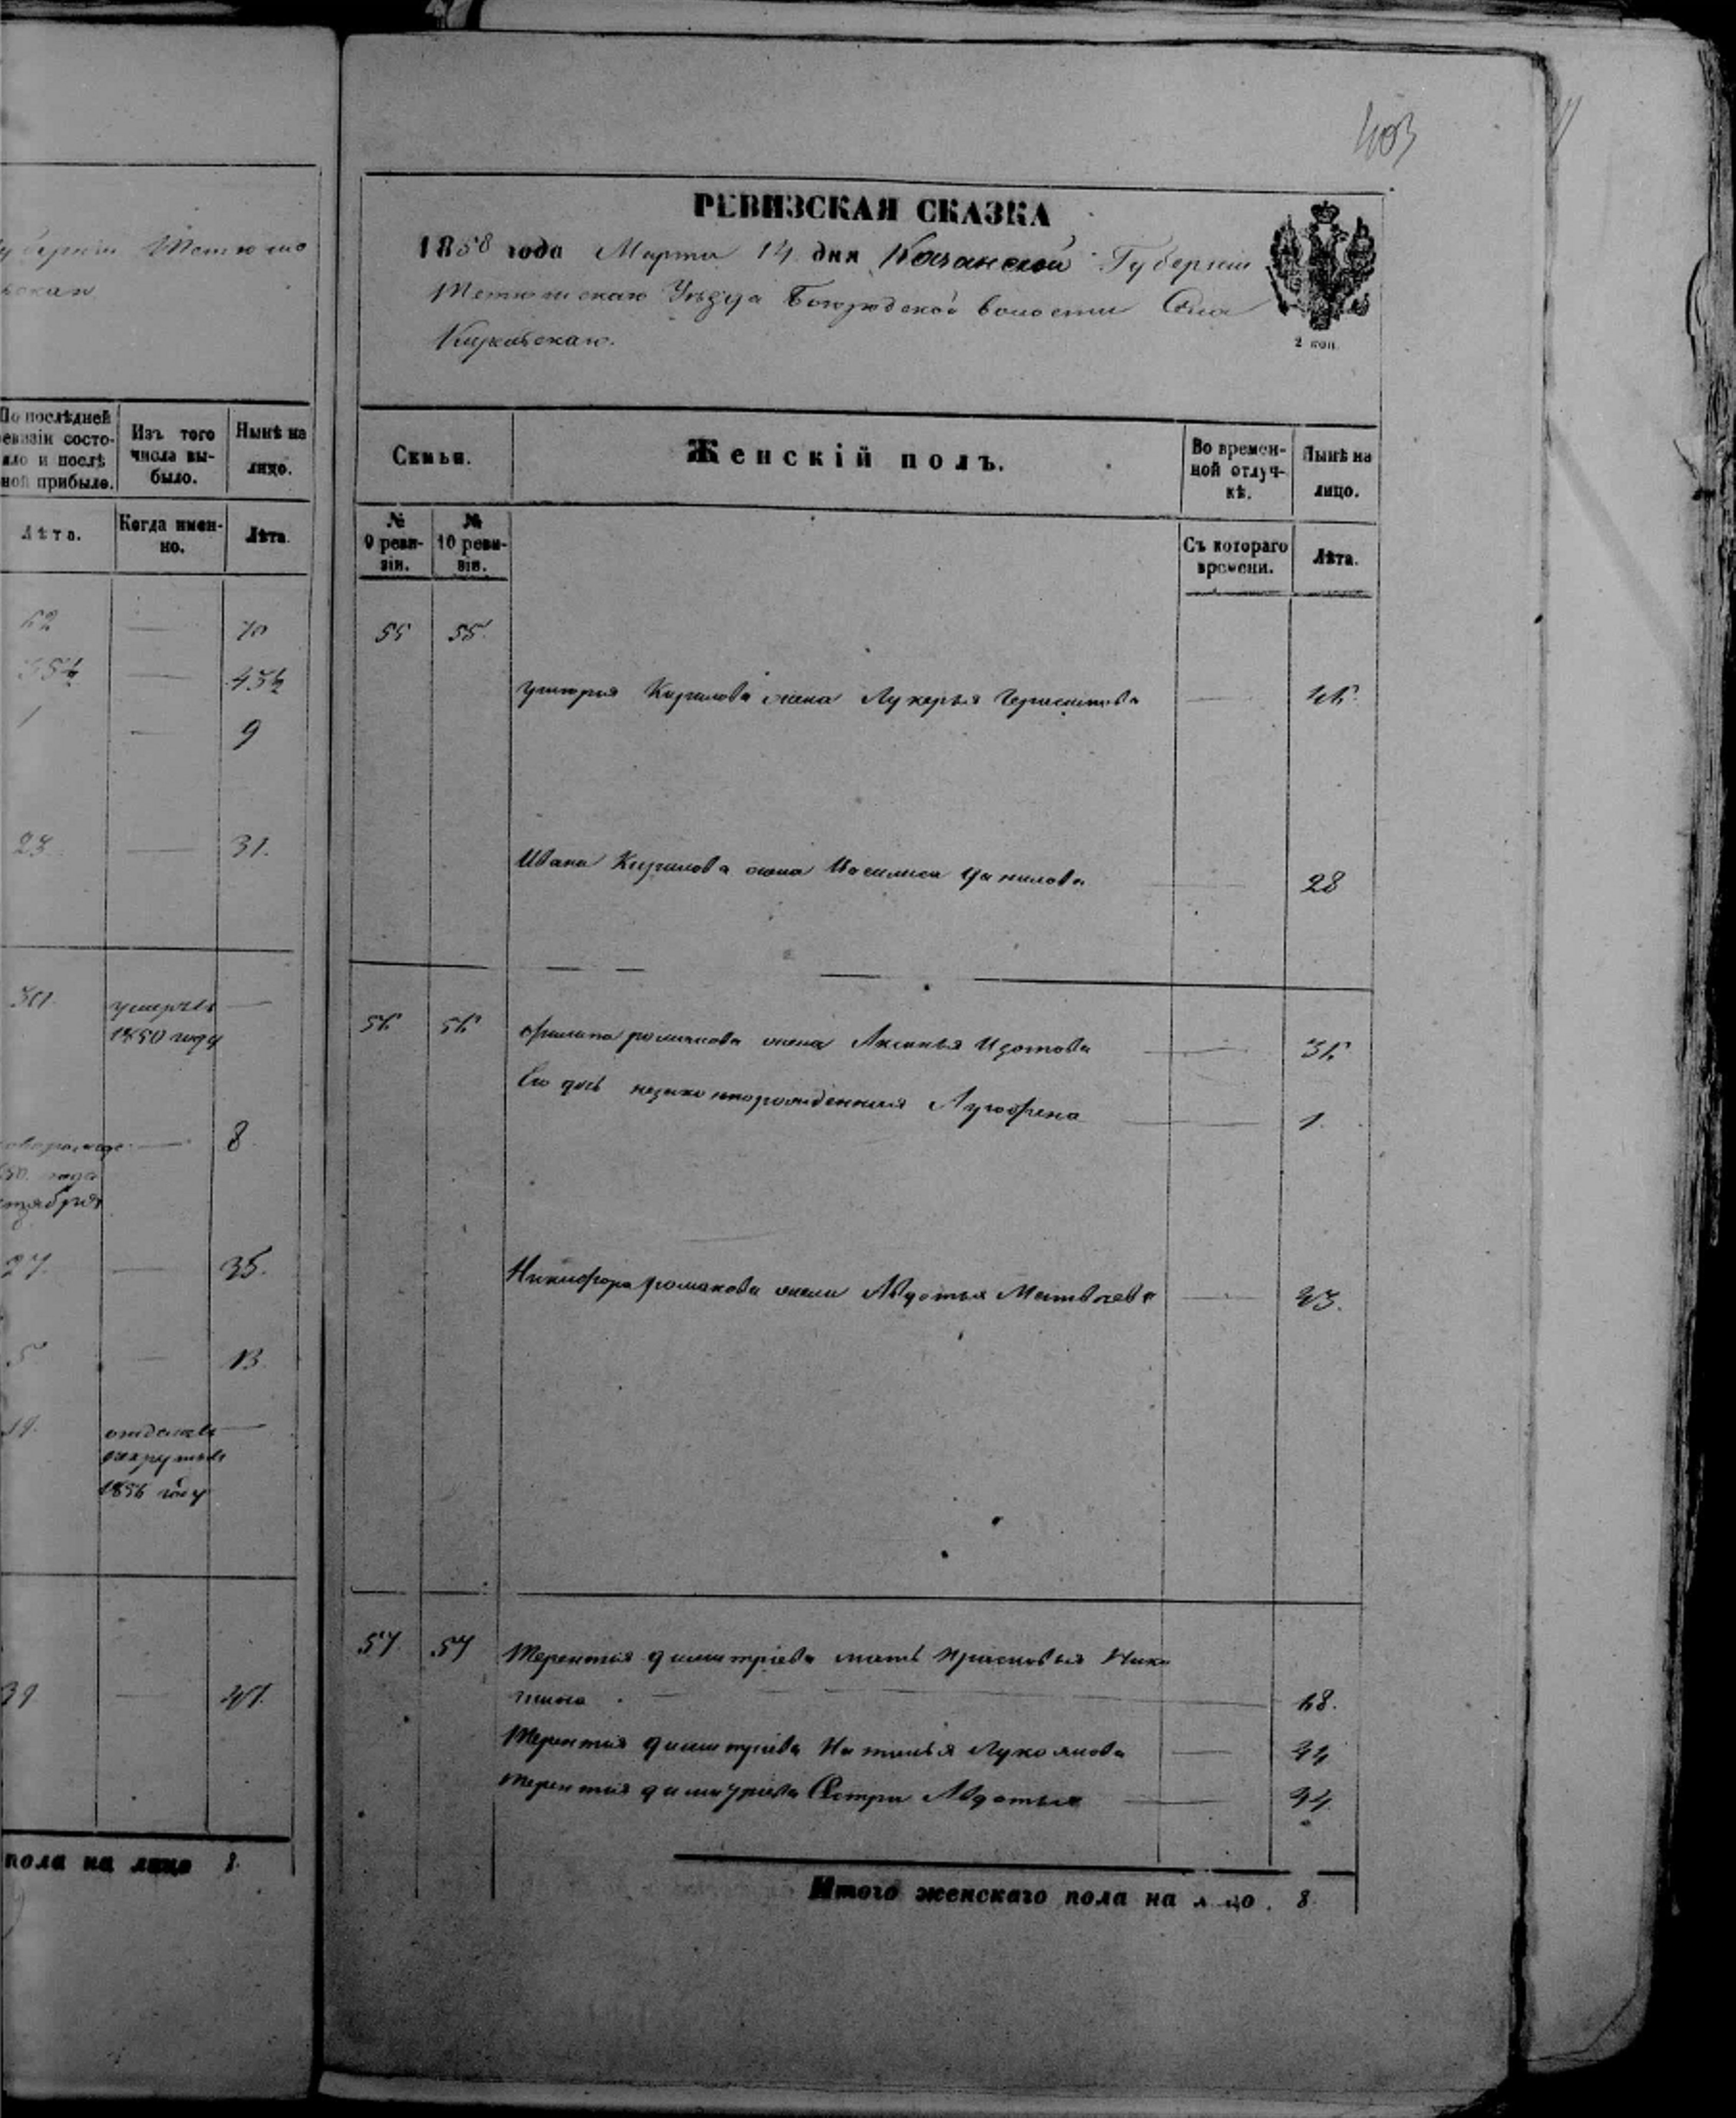 403
губерніи Тетюшс
По послѣдней ревизіи состояло и послѣ ной прибыло.
Изъ того числа выбыло.
Нынѣ на лицо.
Лѣта.
Когда именно.
Лѣта.
62 — 70
35½ — 43½
1 — 9
23 — 31.
30 умеръ въ —
1850 году
8.
27. — 35.
5 — 13.
19. отданъ въ —
рекруты въ
1856 году
39 — 47.
пола на лицо 8.
РЕВИЗСКАЯ СКАЗКА
1858 года Марта 14 дня Казанской Губерніи
Тетюшскаго Уѣзда Богородской волости Села
2 коп.
Семьи.
Женскій полъ.
Во временной отлучкѣ.
Нынѣ на лицо.
№ 9 ревизіи.
№ 10 ревизіи.
Съ котораго времени.
Лѣта.
55 55.
Григорья Кирилова жена Лукерья — 46.
Ивана Кирилова жена Василиса Данилова — 28
56 56 Филипа романова жена Аксинья Изотова — 36
Его дочь незаконнорожденная Агрофена — 1.
Никифора романова жена Авдотья Матвѣева — 43.
57 57 Терентья димитріева мать Прасковья Ники
тина — 68.
Терентья димитріева Наталья Лукоянова — 44
Терентья димитріева Сестра Авдотья — 34.
Итого женскаго пола на лицо. 8.